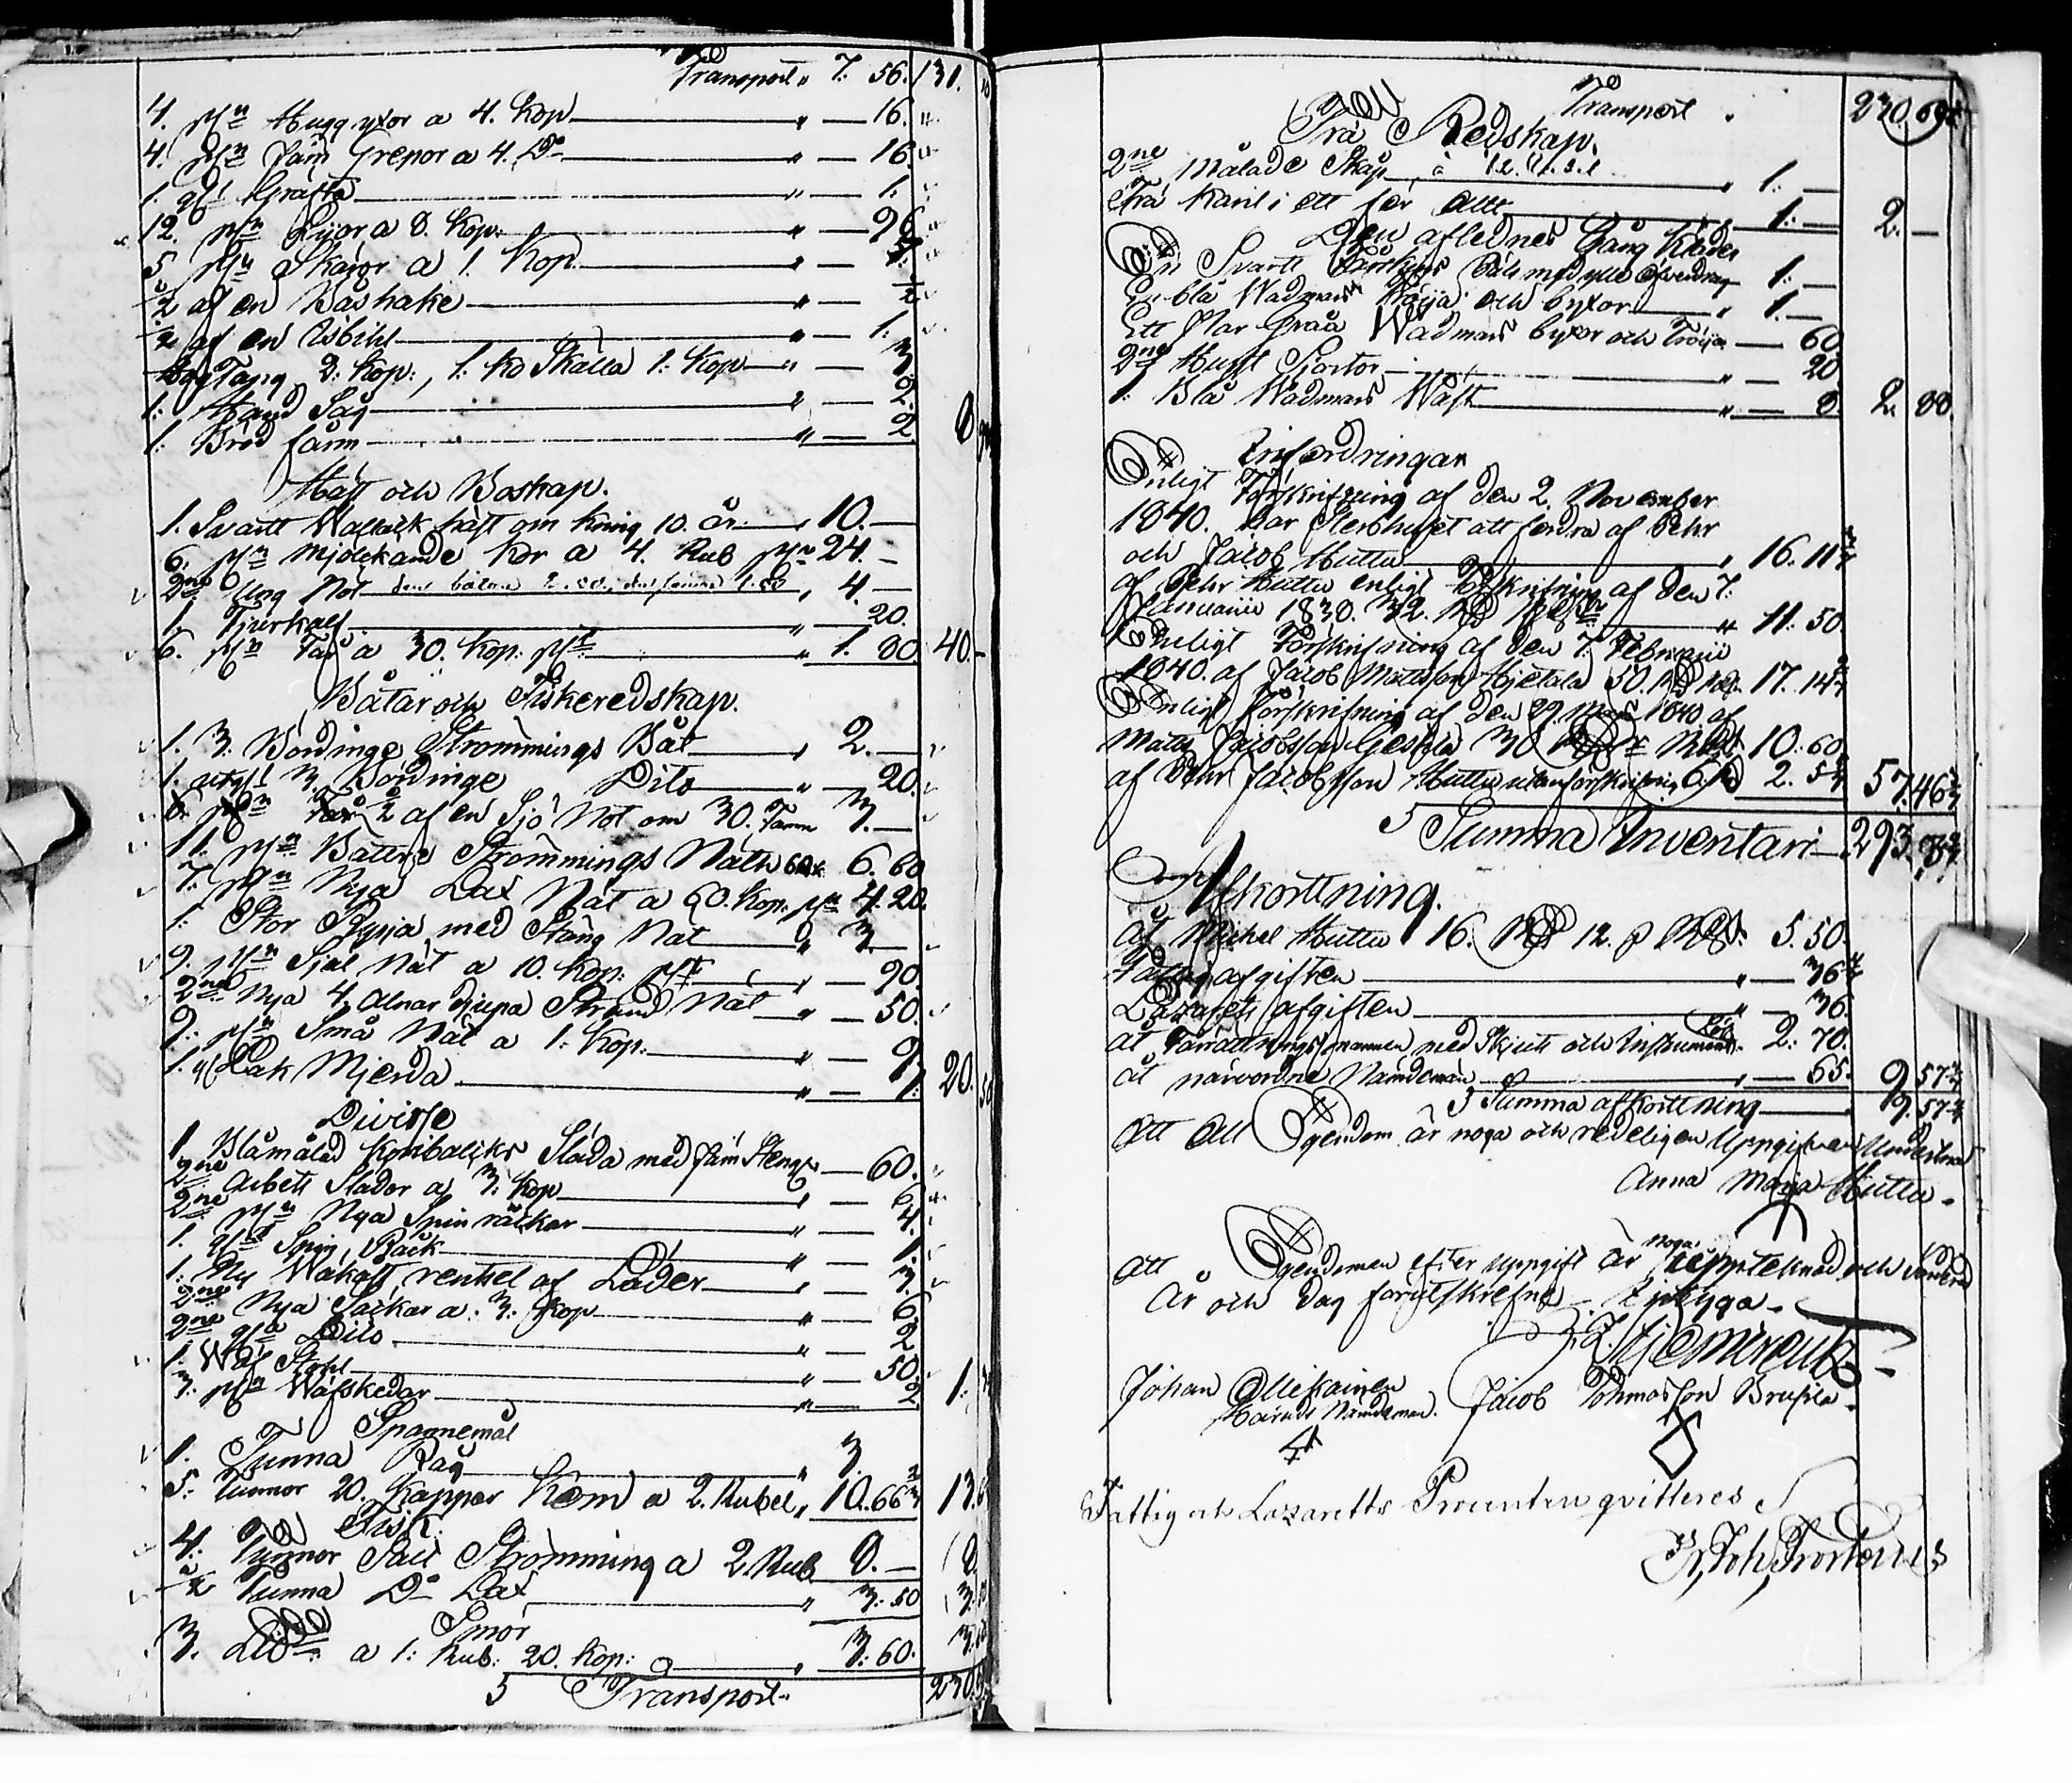 Transport " 7. 56. 131.
4. st:n Huggyxor a 4. Kop " — 16.
4. st:n Järn Grepor a 4. Do " — 16
1. gl Gräfta " — 1.
12. st:n Lijor a 8. Kop: " — 96
5 st:n Skäror a 1. Kop. " — 5.
1/2 af en Båshake " —
1/2 af en Isbihl " — 1.
Tång 2: Kop:, 1: Ko Skälla 1: Kop " — 3.
1: Hand Såg " — 2.
1. Bröd färn " — 2 8
Häst och Boskap.
1. Svartt Wallack häst om kring 10. år " 10. —
6. st:n mjölckande Kor a 4. Rub st:n 24. —
2ne Ung Nöt den bättre 2.20., den sämre 1.80 " 4. —
1. Tjurkalf " — 20.
6. st:n Får a 30. Kop: st:k " 1. 80 40. —
Båtar och Fiskeredskap.
1. 3. Bördinge Strömmings Båt " 2. —
1. utgl 3. Bördinge Dito " — 20.
1/2 af en Sjö Not om 30. Famn 3. —
11. st:n Bättre Strömmings Nät a 60 k 6. 60
7. st:n Nya Lax Nät a 60. Kop: st:n 4. 20.
1: Stor Ryssja med Stäng Nät " 3. —
9. st:n Själ Nät a 10. Kop: st:k " — 90.
2ne Nya 4. Alnar djupa Strand Nät " — 50.
9: st:n Små Nät a 1: Kop: " — 9.
1. Lak Mjerda " — 1: 20. 50
Diverse
1 Blåmålad Koribalik Släda med Järn Stenger — 60.
2ne Arbets Slädor a 3. Kop " — 6
2ne st:n Nya Spin räckar " — 4.
1. gl Spin Räck " — 1.
1: Ny Wäkast rentzel af Läder " — 3.
2ne Nya Säckar a. 3: Kop " — 6.
2ne gla Dito " — 2
1. Wäf Stohl " — 50.
3. st:n Wäfskedar " — 2 1:
Spannemål
1. Tunna Råg " 3.
5: Tunnor 20. Kappar Korn a 2. Rubel " 10.66 2/3 13.
Fisk.
4. Tunnor Salt Strömming a 2. Rub 8. — 8
1/2 Tunna Do Lax " 3. 50 3.
Smör
3. L a 1: Rub: 20. Kop: " 3: 60. 3.
Transport 230.
Transport. 230. 69
Trä Redskap.
2ne Målade Skåp " 1. —
Trä Käril i ett för Allt " 1: — 2. —
Den aflednes Gång Kläder
En Svartt Päls med ylle öfverdrag 1: —
En blå Wadmans Tröija och byxor " 1. —
Ett Par Gråa Wadmans byxor och Tröja — 60
2ne Hufft Sjortor " — 20
1. Blå Wadmans Wäst " — 8. 2. 88.
Infordringar
Enligt Förskrifning af den 2. November
1840. har Sterbhuset att fordra af Pehr
och Jacob Huttu " 16. 11 3/7
af Pehr Huttu enligt Förskrifning af den 7:
Januarii 1830. 32. " 11. 50.
Enligt Förskrifning af den 7. Februarii
1840. af Jacob Mattsson Hjetala 50. 17. 14 2/7
Enligt förskrifning af den 29. Mars 1840 af
Matts Jacobsson 30 10. 60
af Pehr Jacobsson Huttu utan förskrifning 2. 5 57. 46
Summa Inventarii 293.
Afkorttning.
Åt Mickel Huttu 16. 12. 5. 50.
Fattig afgiften " — 36
Lazaretts afgiften " — 36.
åt Förrättningsmannen med Skjuts och Instrument 2: 70.
åt närvordne Nämdeman " — 65. 9. 57
Summa afkorttning 9. 57
Att All Egendom är noga och redeligen Uppgifven
Anna Maja Huttu.
Att Egendomen efter Uppgift är noga uppteknad och
År och dag förutskrefne — Intyga —
Johan Ollikainen Jacob Thomasson
Härads Nämdeman.
Fattig och Lazaretts Procenten qvitteres